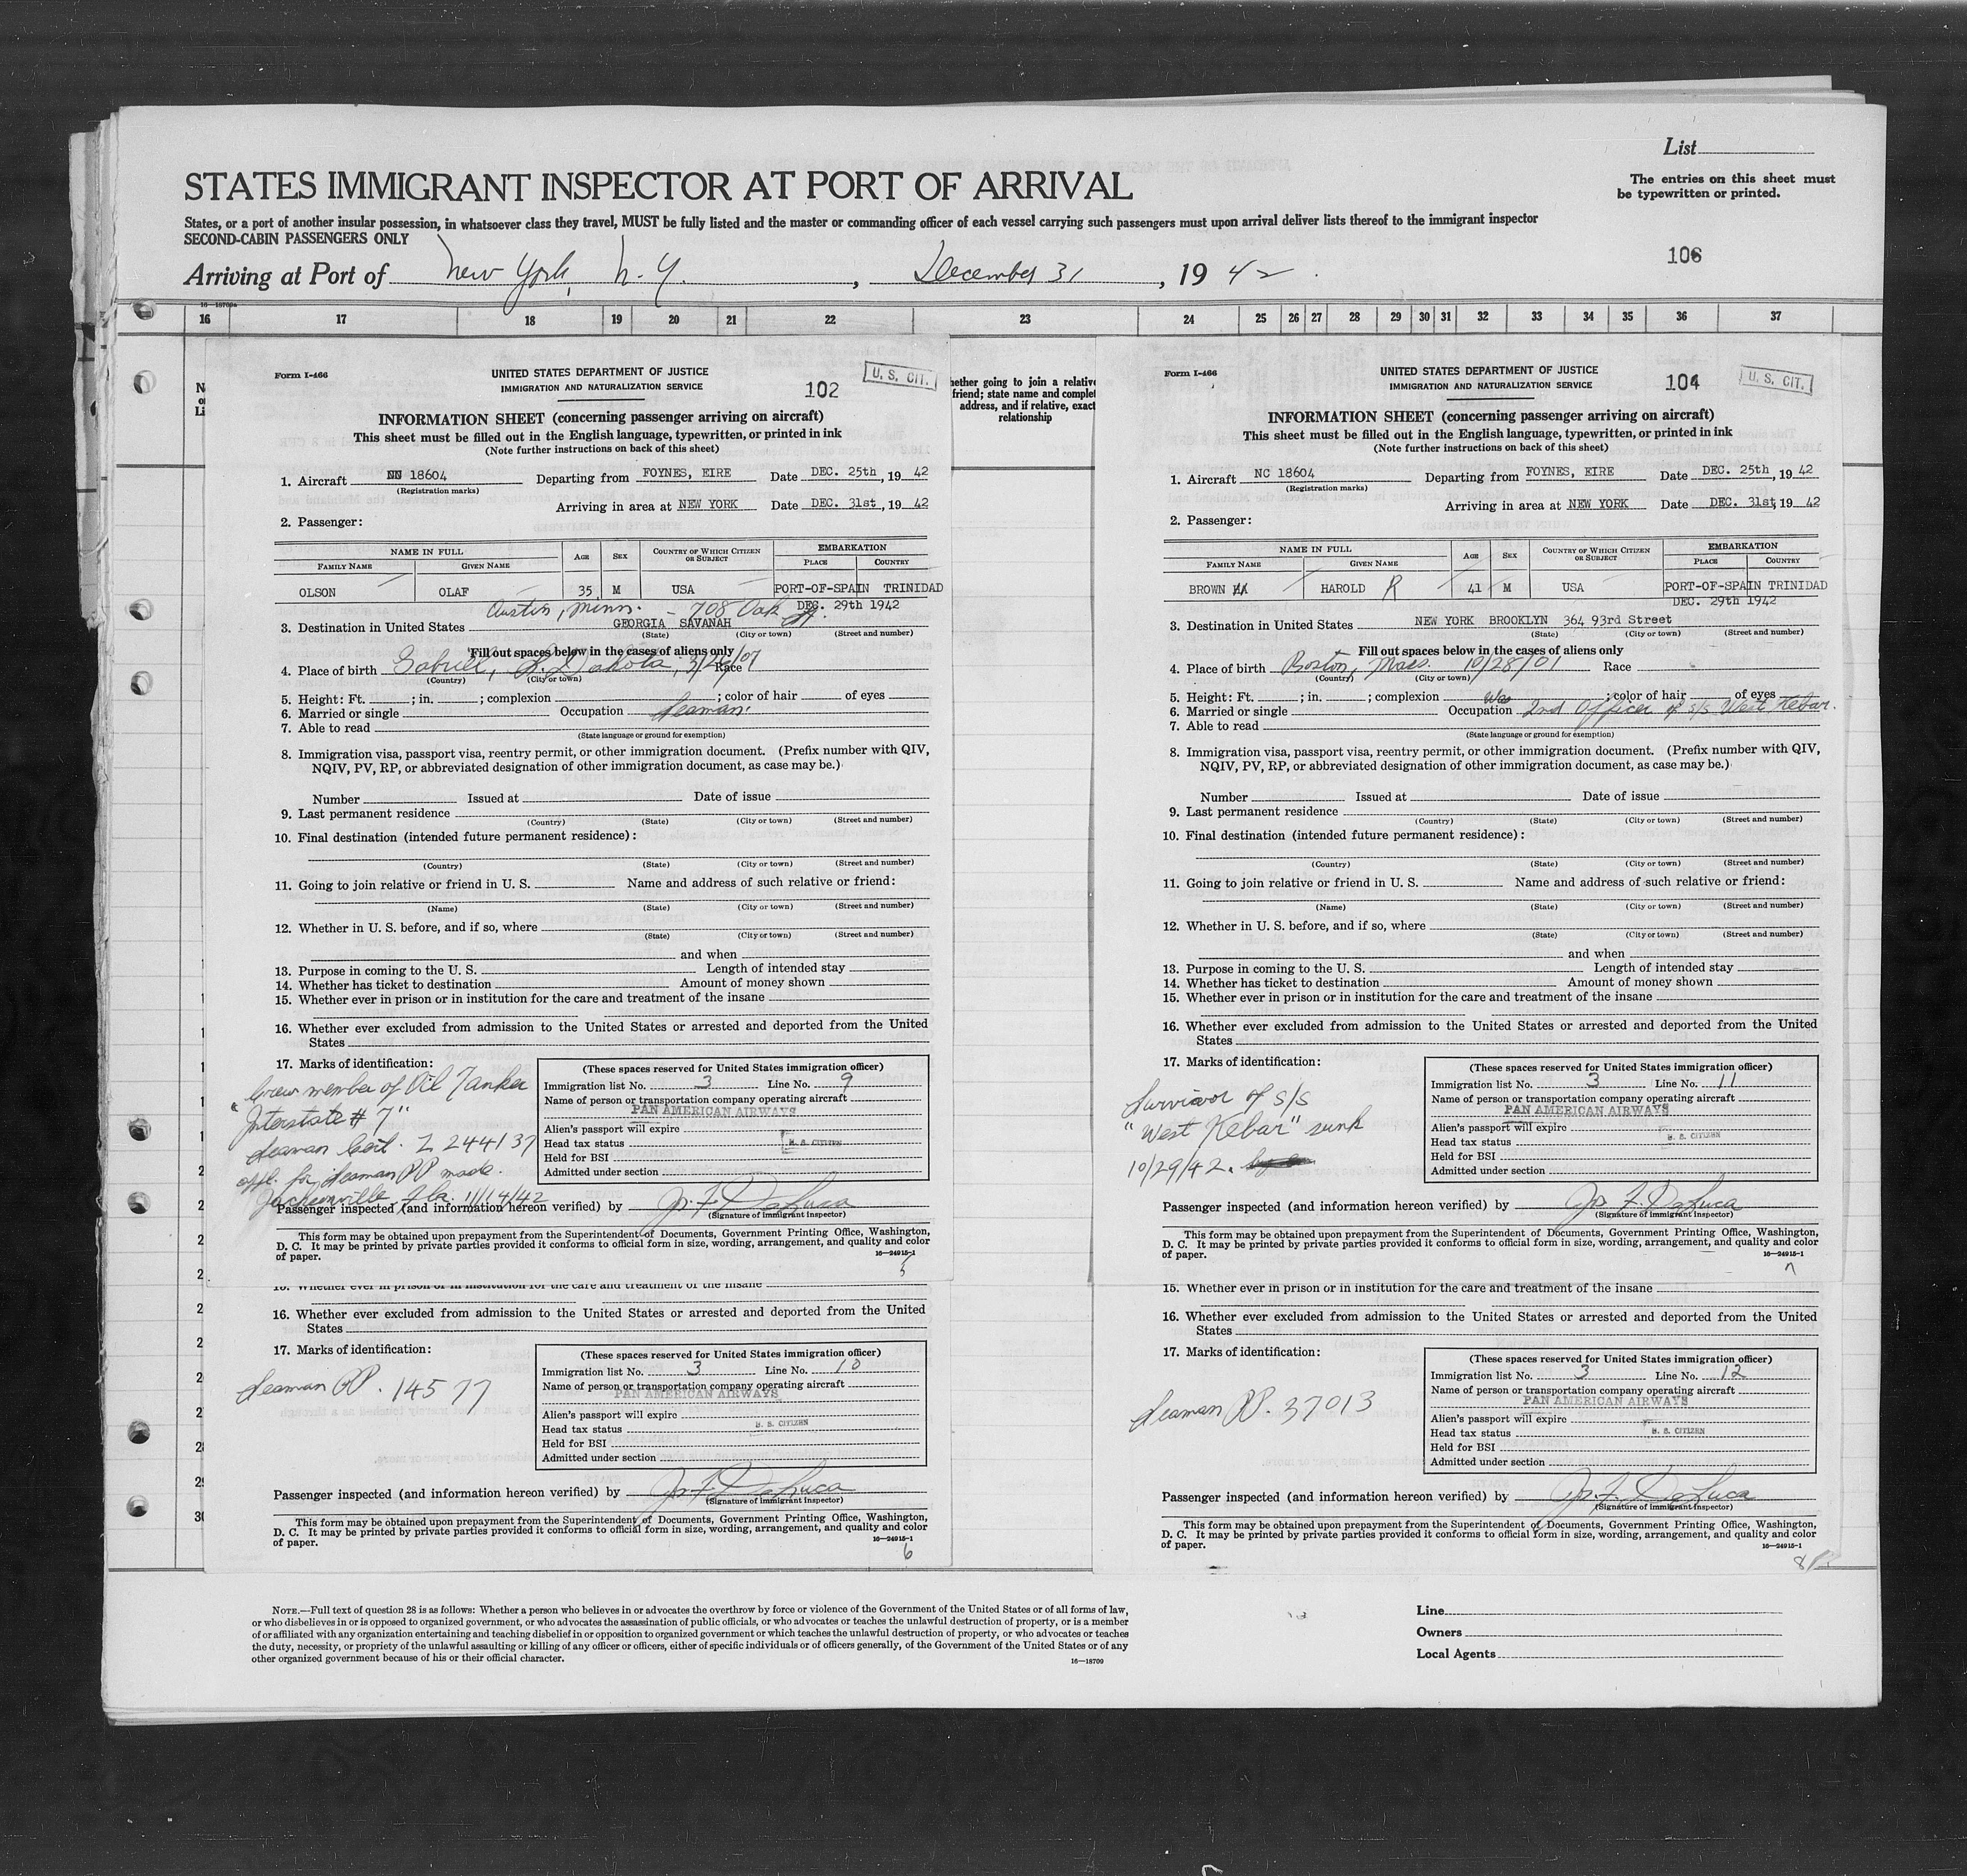 List
STATES IMMIGRANT INSPECTOR AT PORT OF ARRIVAL
The entries on this sheet must
be typewritten or printed.
States, or a port of another insular possession, in whatsoever class they travel, MUST be fully listed and the master or commanding officer of each vessel carrying such passengers must upon arrival deliver lists thereof to the immigrant inspector
SECOND-CABIN PASSENGERS ONLY
106
Arriving at Port of New York, N.Y. , December 31 , 19 42 .
16—18709a
16 17 18 19 20 21 22 23 24 25 26 27 28 29 30 31 32 33 34 35 36 37
hether going to join a relative
friend; state name and complet
address, and if relative, exact
relationship
Form I-466
UNITED STATES DEPARTMENT OF JUSTICE
IMMIGRATION AND NATURALIZATION SERVICE
102
U. S. CIT.
INFORMATION SHEET (concerning passenger arriving on aircraft)
This sheet must be filled out in the English language, typewritten, or printed in ink
(Note further instructions on back of this sheet)
1. Aircraft 18604 Departing from FOYNES, EIRE Date DEC. 25th, 19 42
(Registration marks)
Arriving in area at NEW YORK Date DEC. 31st, 19 42
2. Passenger:
NAME IN FULL AGE SEX COUNTRY OF WHICH CITIZEN OR SUBJECT EMBARKATION
FAMILY NAME GIVEN NAME PLACE COUNTRY
OLSON OLAF 35 M USA PORT-OF-SPAIN TRINIDAD
Austin, Minn. - 708 Oak St. DEC. 29th 1942
3. Destination in United States GEORGIA SAVANAH
(State) (City or town) (Street and number)
Fill out spaces below in the cases of aliens only
4. Place of birth Gabriel, Dakota, 3/26/07 Race
(Country) (City or town)
5. Height: Ft. ; in. ; complexion ; color of hair of eyes
6. Married or single Occupation Seaman.
7. Able to read
(State language or ground for exemption)
8. Immigration visa, passport visa, reentry permit, or other immigration document. (Prefix number with QIV,
NQIV, PV, RP, or abbreviated designation of other immigration document, as case may be.)
Number Issued at Date of issue
9. Last permanent residence
(Country) (State) (City or town) (Street and number)
10. Final destination (intended future permanent residence):
(Country) (State) (City or town) (Street and number)
11. Going to join relative or friend in U. S. Name and address of such relative or friend:
(Name) (State) (City or town) (Street and number)
12. Whether in U. S. before, and if so, where
(State) (City or town) (Street and number)
and when
13. Purpose in coming to the U. S. Length of intended stay
14. Whether has ticket to destination Amount of money shown
15. Whether ever in prison or in institution for the care and treatment of the insane
16. Whether ever excluded from admission to the United States or arrested and deported from the United
States
17. Marks of identification:
Crew member of Oil Tanker
"Interstate # 7"
Seaman Cert. Z 244137
appl. for Seaman PP made.
Jacksonville, Fla. 11/14/42
(These spaces reserved for United States immigration officer)
Immigration list No. 3 Line No. 9
Name of person or transportation company operating aircraft
PAN AMERICAN AIRWAYS
Alien's passport will expire
Head tax status U. S. CITIZEN
Held for BSI
Admitted under section
Passenger inspected (and information hereon verified) by Js. F. DeLuca
(Signature of immigrant inspector)
This form may be obtained upon prepayment from the Superintendent of Documents, Government Printing Office, Washington,
D. C. It may be printed by private parties provided it conforms to official form in size, wording, arrangement, and quality and color
of paper. 16—24915-1
5
15. Whether ever in prison or in institution for the care and treatment of the insane
16. Whether ever excluded from admission to the United States or arrested and deported from the United
States
17. Marks of identification:
Seaman PP. 14577
(These spaces reserved for United States immigration officer)
Immigration list No. 3 Line No. 10
Name of person or transportation company operating aircraft
PAN AMERICAN AIRWAYS
Alien's passport will expire
Head tax status U. S. CITIZEN
Held for BSI
Admitted under section
Passenger inspected (and information hereon verified) by Js. F. DeLuca
(Signature of immigrant inspector)
This form may be obtained upon prepayment from the Superintendent of Documents, Government Printing Office, Washington,
D. C. It may be printed by private parties provided it conforms to official form in size, wording, arrangement, and quality and color
of paper. 16—24915-1
6
Form I-466
UNITED STATES DEPARTMENT OF JUSTICE
IMMIGRATION AND NATURALIZATION SERVICE
104
U. S. CIT.
INFORMATION SHEET (concerning passenger arriving on aircraft)
This sheet must be filled out in the English language, typewritten, or printed in ink
(Note further instructions on back of this sheet)
1. Aircraft NC 18604 Departing from FOYNES, EIRE Date DEC. 25th, 19 42
(Registration marks)
Arriving in area at NEW YORK Date DEC. 31st, 19 42
2. Passenger:
NAME IN FULL AGE SEX COUNTRY OF WHICH CITIZEN OR SUBJECT EMBARKATION
FAMILY NAME GIVEN NAME PLACE COUNTRY
BROWN HAROLD R 41 M USA PORT-OF-SPAIN TRINIDAD
DEC. 29th 1942
3. Destination in United States NEW YORK BROOKLYN 364 93rd Street
(State) (City or town) (Street and number)
Fill out spaces below in the cases of aliens only
4. Place of birth Boston, Mass. 10/28/01 Race
(Country) (City or town)
5. Height: Ft. ; in. ; complexion Was ; color of hair of eyes
6. Married or single Occupation 2nd Officer of s/s West Kebar.
7. Able to read
(State language or ground for exemption)
8. Immigration visa, passport visa, reentry permit, or other immigration document. (Prefix number with QIV,
NQIV, PV, RP, or abbreviated designation of other immigration document, as case may be.)
Number Issued at Date of issue
9. Last permanent residence
(Country) (State) (City or town) (Street and number)
10. Final destination (intended future permanent residence):
(Country) (State) (City or town) (Street and number)
11. Going to join relative or friend in U. S. Name and address of such relative or friend:
(Name) (State) (City or town) (Street and number)
12. Whether in U. S. before, and if so, where
(State) (City or town) (Street and number)
and when
13. Purpose in coming to the U. S. Length of intended stay
14. Whether has ticket to destination Amount of money shown
15. Whether ever in prison or in institution for the care and treatment of the insane
16. Whether ever excluded from admission to the United States or arrested and deported from the United
States
17. Marks of identification:
Survivor of s/s
"West Kebar" sunk
10/29/42.
(These spaces reserved for United States immigration officer)
Immigration list No. 3 Line No. 11
Name of person or transportation company operating aircraft
PAN AMERICAN AIRWAYS
Alien's passport will expire
Head tax status U. S. CITIZEN
Held for BSI
Admitted under section
Passenger inspected (and information hereon verified) by Js. F. DeLuca
(Signature of immigrant inspector)
This form may be obtained upon prepayment from the Superintendent of Documents, Government Printing Office, Washington,
D. C. It may be printed by private parties provided it conforms to official form in size, wording, arrangement, and quality and color
of paper. 16—24915-1
7
15. Whether ever in prison or in institution for the care and treatment of the insane
16. Whether ever excluded from admission to the United States or arrested and deported from the United
States
17. Marks of identification:
Seaman PP. 37013
(These spaces reserved for United States immigration officer)
Immigration list No. 3 Line No. 12
Name of person or transportation company operating aircraft
PAN AMERICAN AIRWAYS
Alien's passport will expire
Head tax status U. S. CITIZEN
Held for BSI
Admitted under section
Passenger inspected (and information hereon verified) by Js. F. DeLuca
(Signature of immigrant inspector)
This form may be obtained upon prepayment from the Superintendent of Documents, Government Printing Office, Washington,
D. C. It may be printed by private parties provided it conforms to official form in size, wording, arrangement, and quality and color
of paper. 16—24915-1
8
NOTE.—Full text of question 28 is as follows: Whether a person who believes in or advocates the overthrow by force or violence of the Government of the United States or of all forms of law,
or who disbelieves in or is opposed to organized government, or who advocates the assassination of public officials, or who advocates or teaches the unlawful destruction of property, or is a member
of or affiliated with any organization entertaining and teaching disbelief in or opposition to organized government or which teaches the unlawful destruction of property, or who advocates or teaches
the duty, necessity, or propriety of the unlawful assaulting or killing of any officer or officers, either of specific individuals or of officers generally, of the Government of the United States or of any
other organized government because of his or their official character. 16—18709
Line
Owners
Local Agents